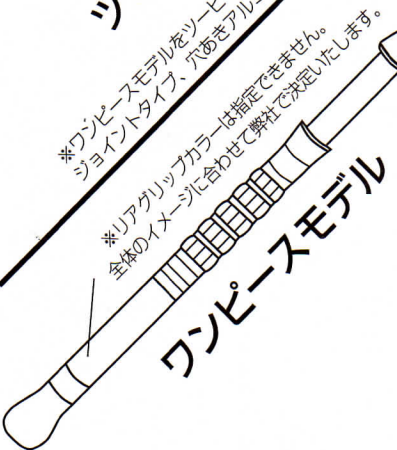 ツ
※ワンピースモデルをツーピ
ジョイントタイプ、穴あきアル
※リアグリップカラーは指定できません。
全体のイメージに合わせて弊社で決定いたします。
ワンピースモデル